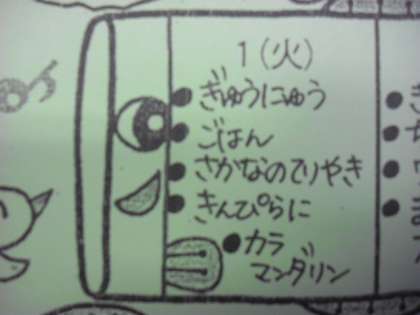 1(火)
●ぎゅうにゅう
●ごはん
●さかなのてりやき
●きんぴらに
●カラ
マンダリン